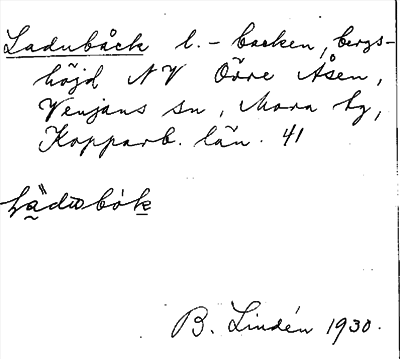 Ladubåck l. - backen, bergs-
höjd NV Övre Åsen,
Venjans sn, Mora hg,
Kopparb. län. 41
Lädωbók
B. Lindén 1930.